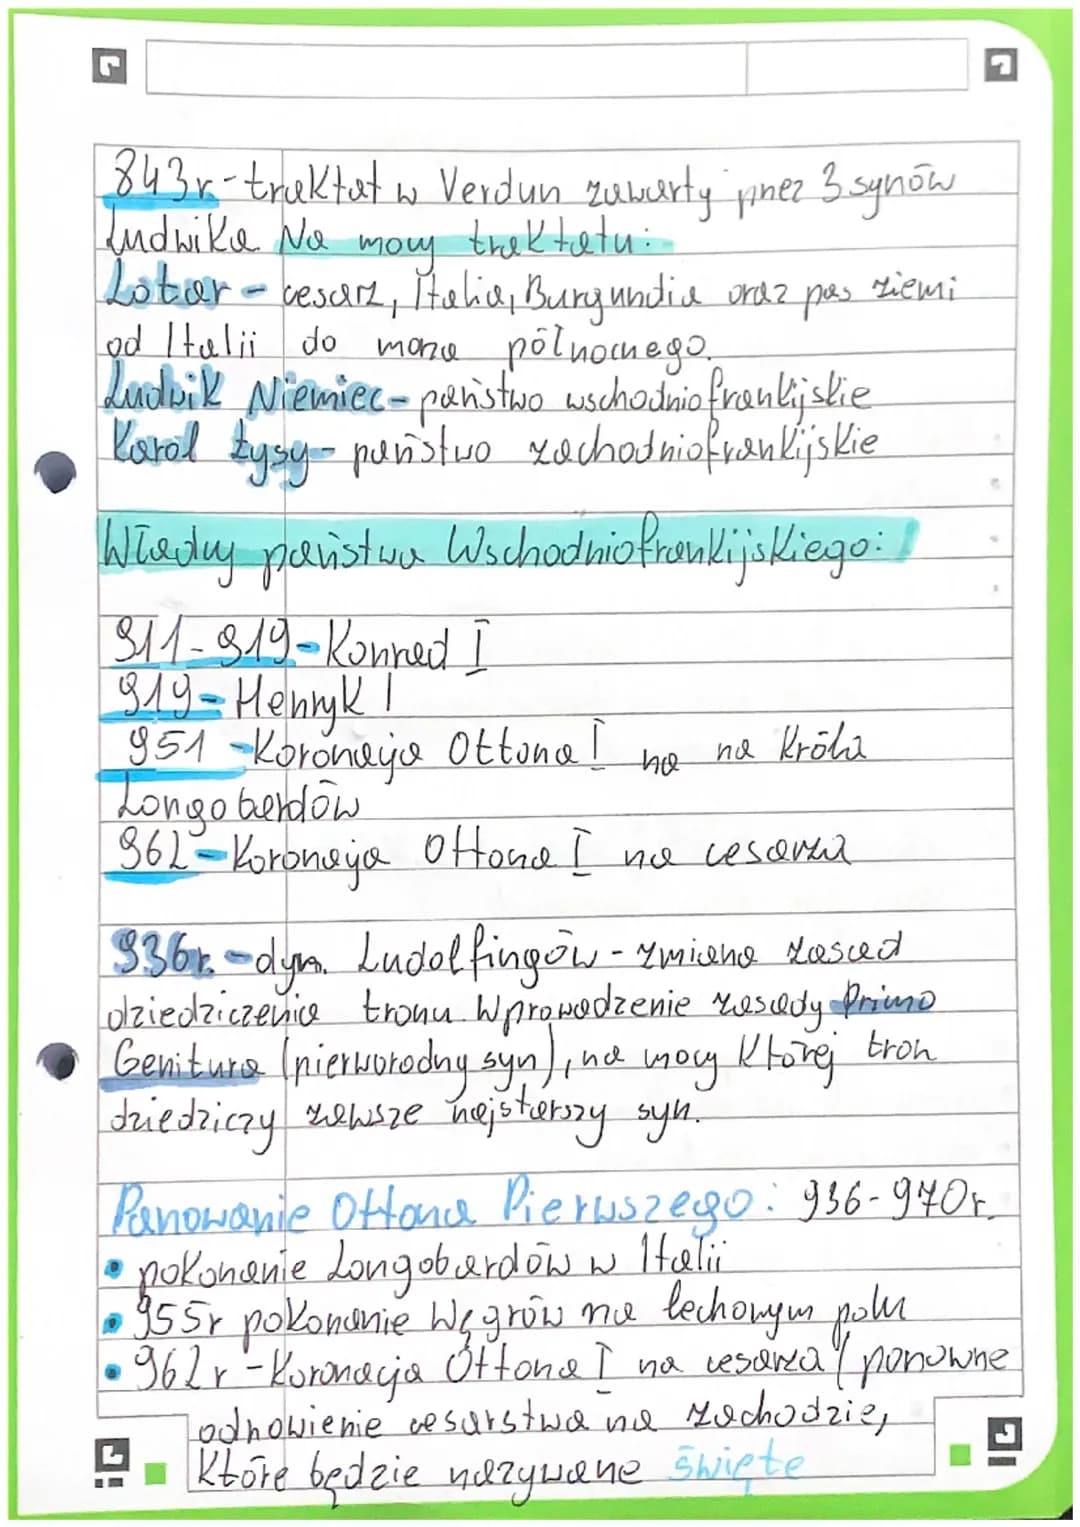 843r-traktat w Verdun zawarty przez 3 synów
Ludwika. Na mocy traktatu:
Lotar - cesarz, Italia, Burgundia oraz pas ziemi
od Italii do morza północnego.
Ludwik Niemiec - państwo wschodniofrankijskie
Karol Łysy - państwo zachodniofrankijskie
Władcy państwa Wschodniofrankijskiego:
911-919-Konrad I
919-Henryk I
951 -Koronacja Ottona I na na Króla
Longobardów
962-Koronacja Ottona I na cesarza
936r.-dyn. Ludolfingów - zmiana zasad
dziedziczenia tronu. Wprowadzenie zasady Primo
Genitura (pierworodny syn), na mocy Której tron
dziedziczy zawsze najstarszy syn.
Panowanie Ottona Pierwszego: 936-970r.
• pokonanie Longobardów w Italii
• 955r pokonanie Węgrów na lechowym polu
• 962r-Koronacja Ottona I na cesarza (ponowne
odnowienie cesarstwa na zachodzie,
Które będzie nazywane święte